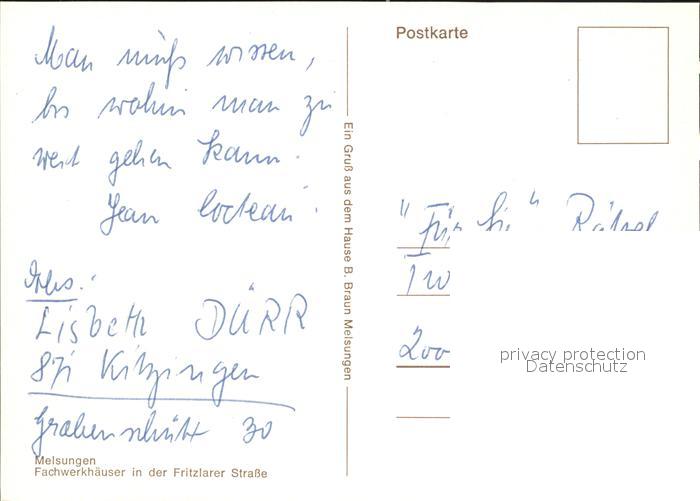 Man muß wissen,
bis wohin man zu
weit gehen kann.
Jean Cocteau.
Abs.:
Lisbeth DÜRR
871 Kitzingen
Grabenschütt 30
Melsungen
Fachwerkhäuser in der Fritzlarer Straße
Ein Gruß aus dem Hause B. Braun Melsungen
Postkarte
"Für Sie" Rätsel
200
privacy protection
Datenschutz